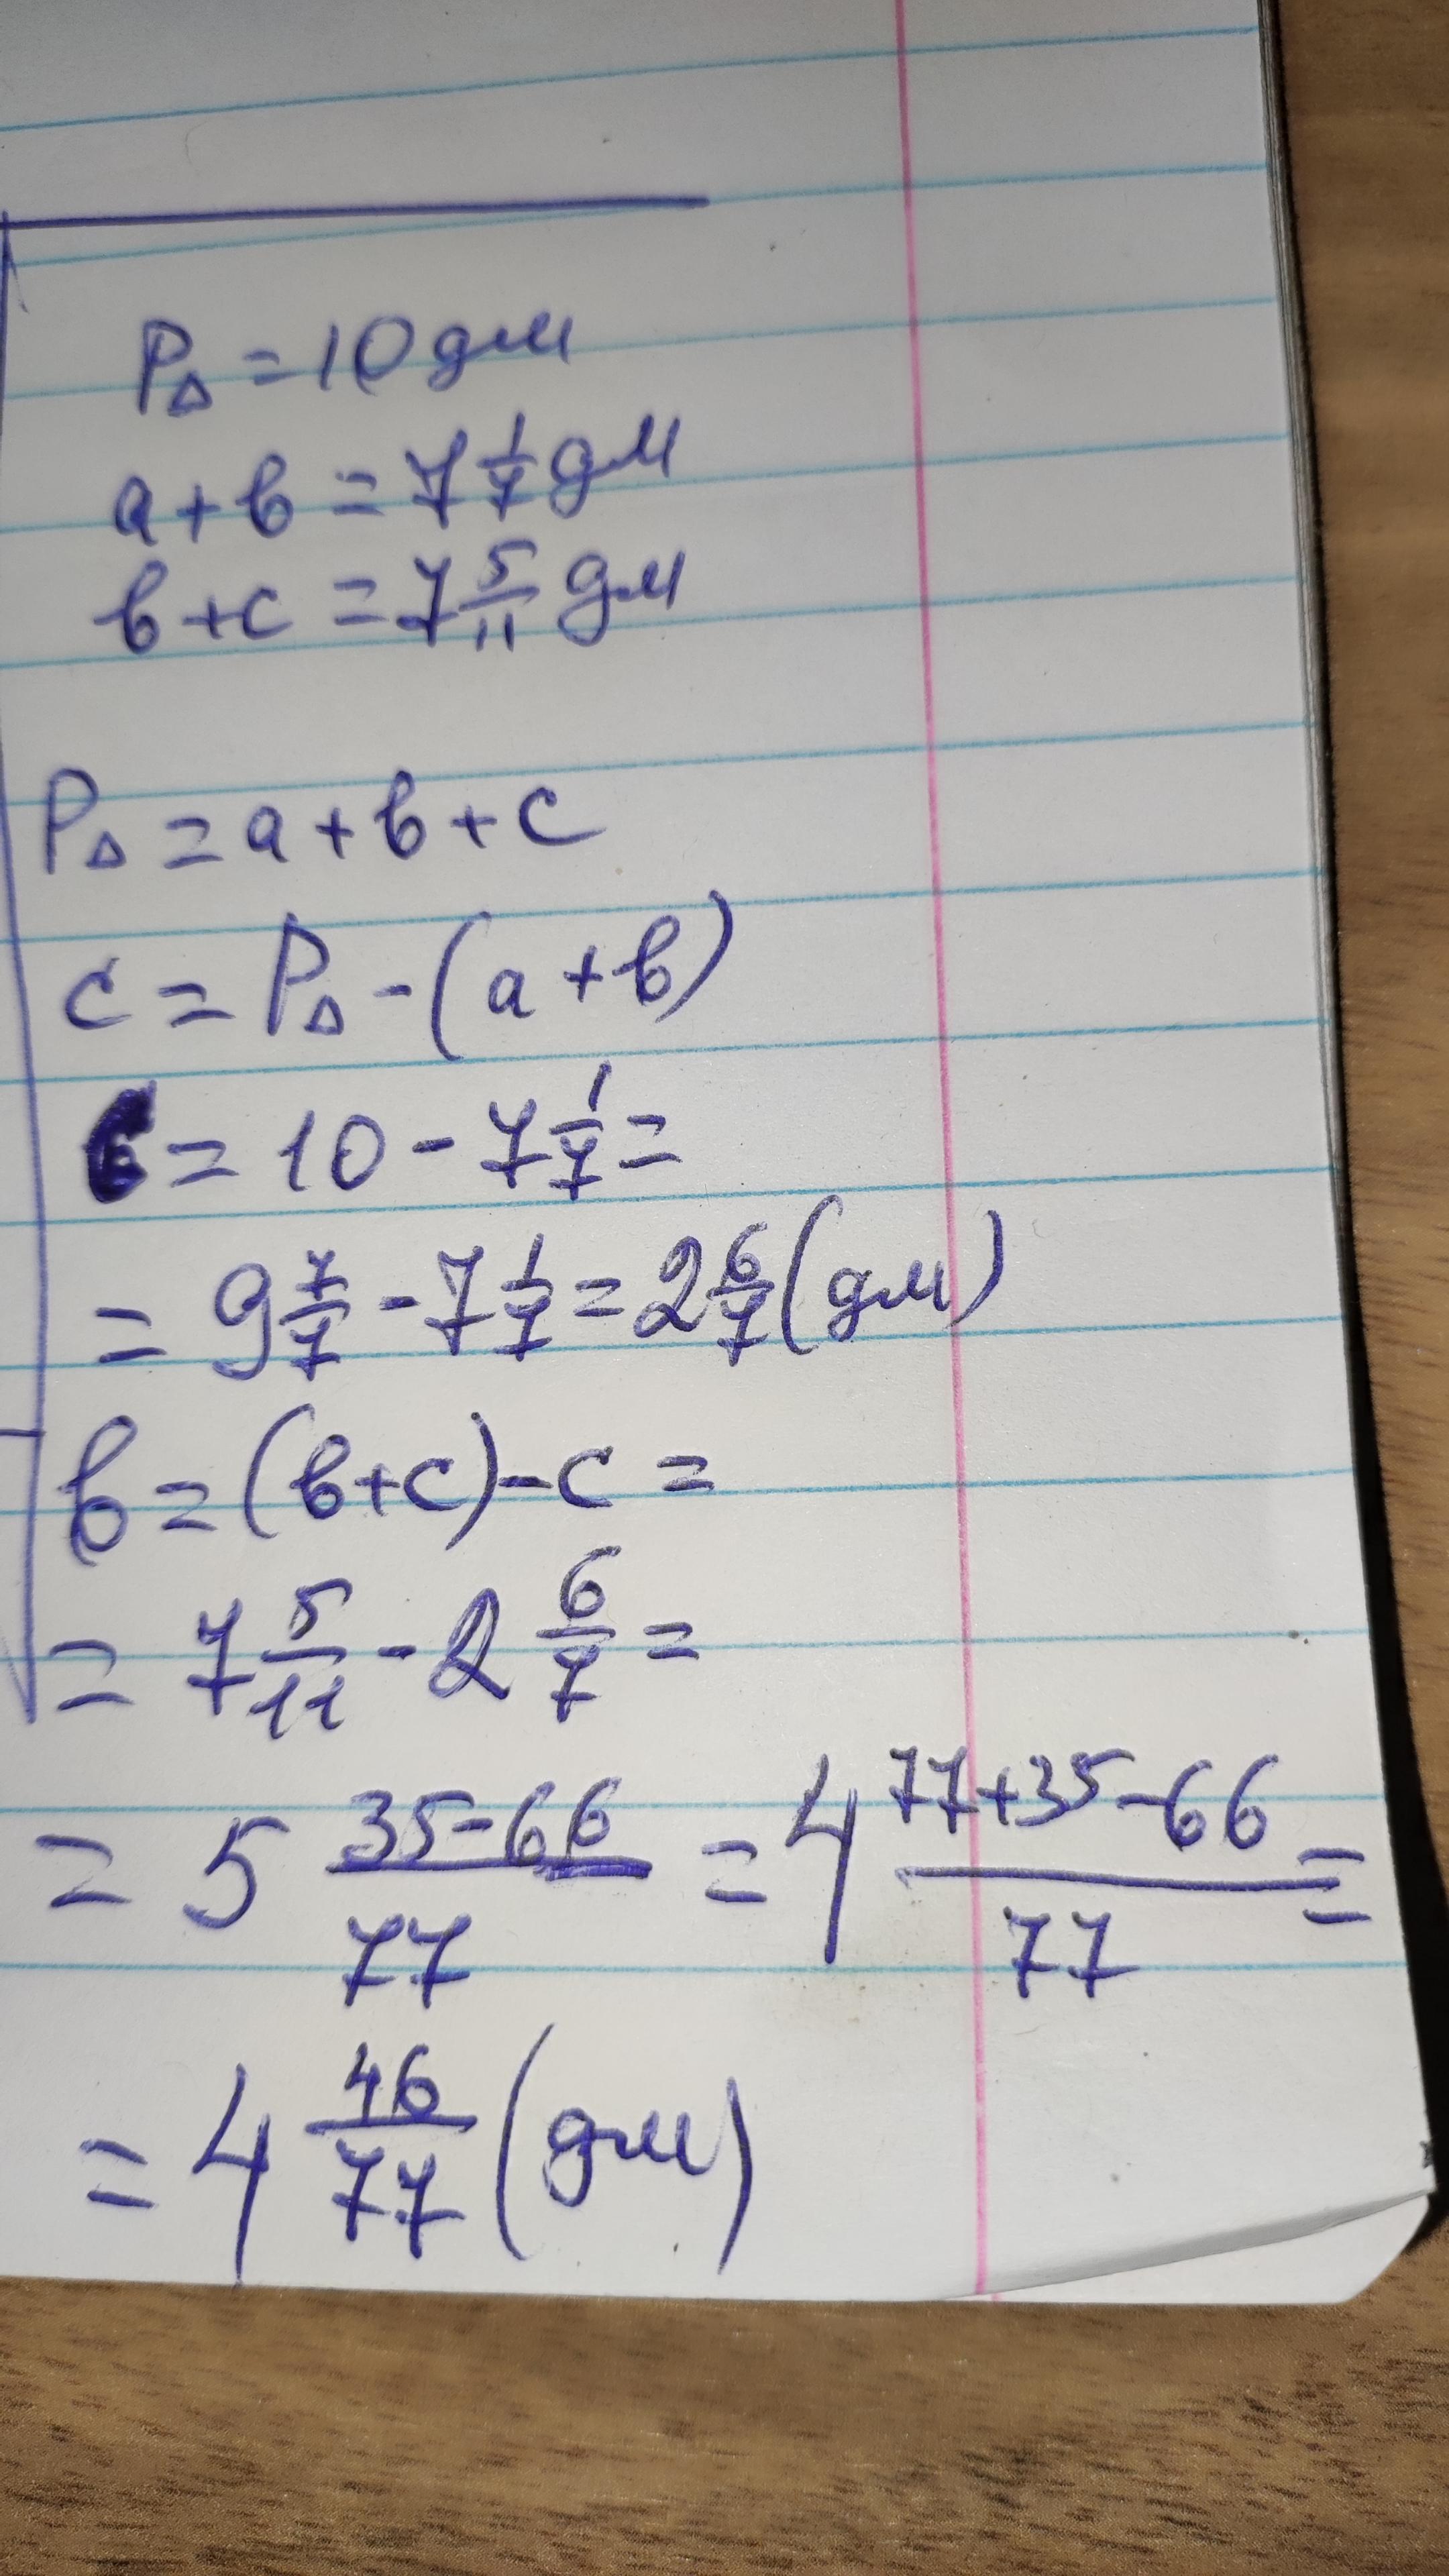 P△ = 10 дм
a + b = 7 1/7 дм
b + c = 7 5/11 дм
P△ = a + b + c
c = P△ - (a + b)
c = 10 - 7 1/7 =
= 9 7/7 - 7 1/7 = 2 6/7 (дм)
b = (b + c) - c =
= 7 5/11 - 2 6/7 =
= 5 35-66/77 = 4 77+35-66/77 =
= 4 46/77 (дм)